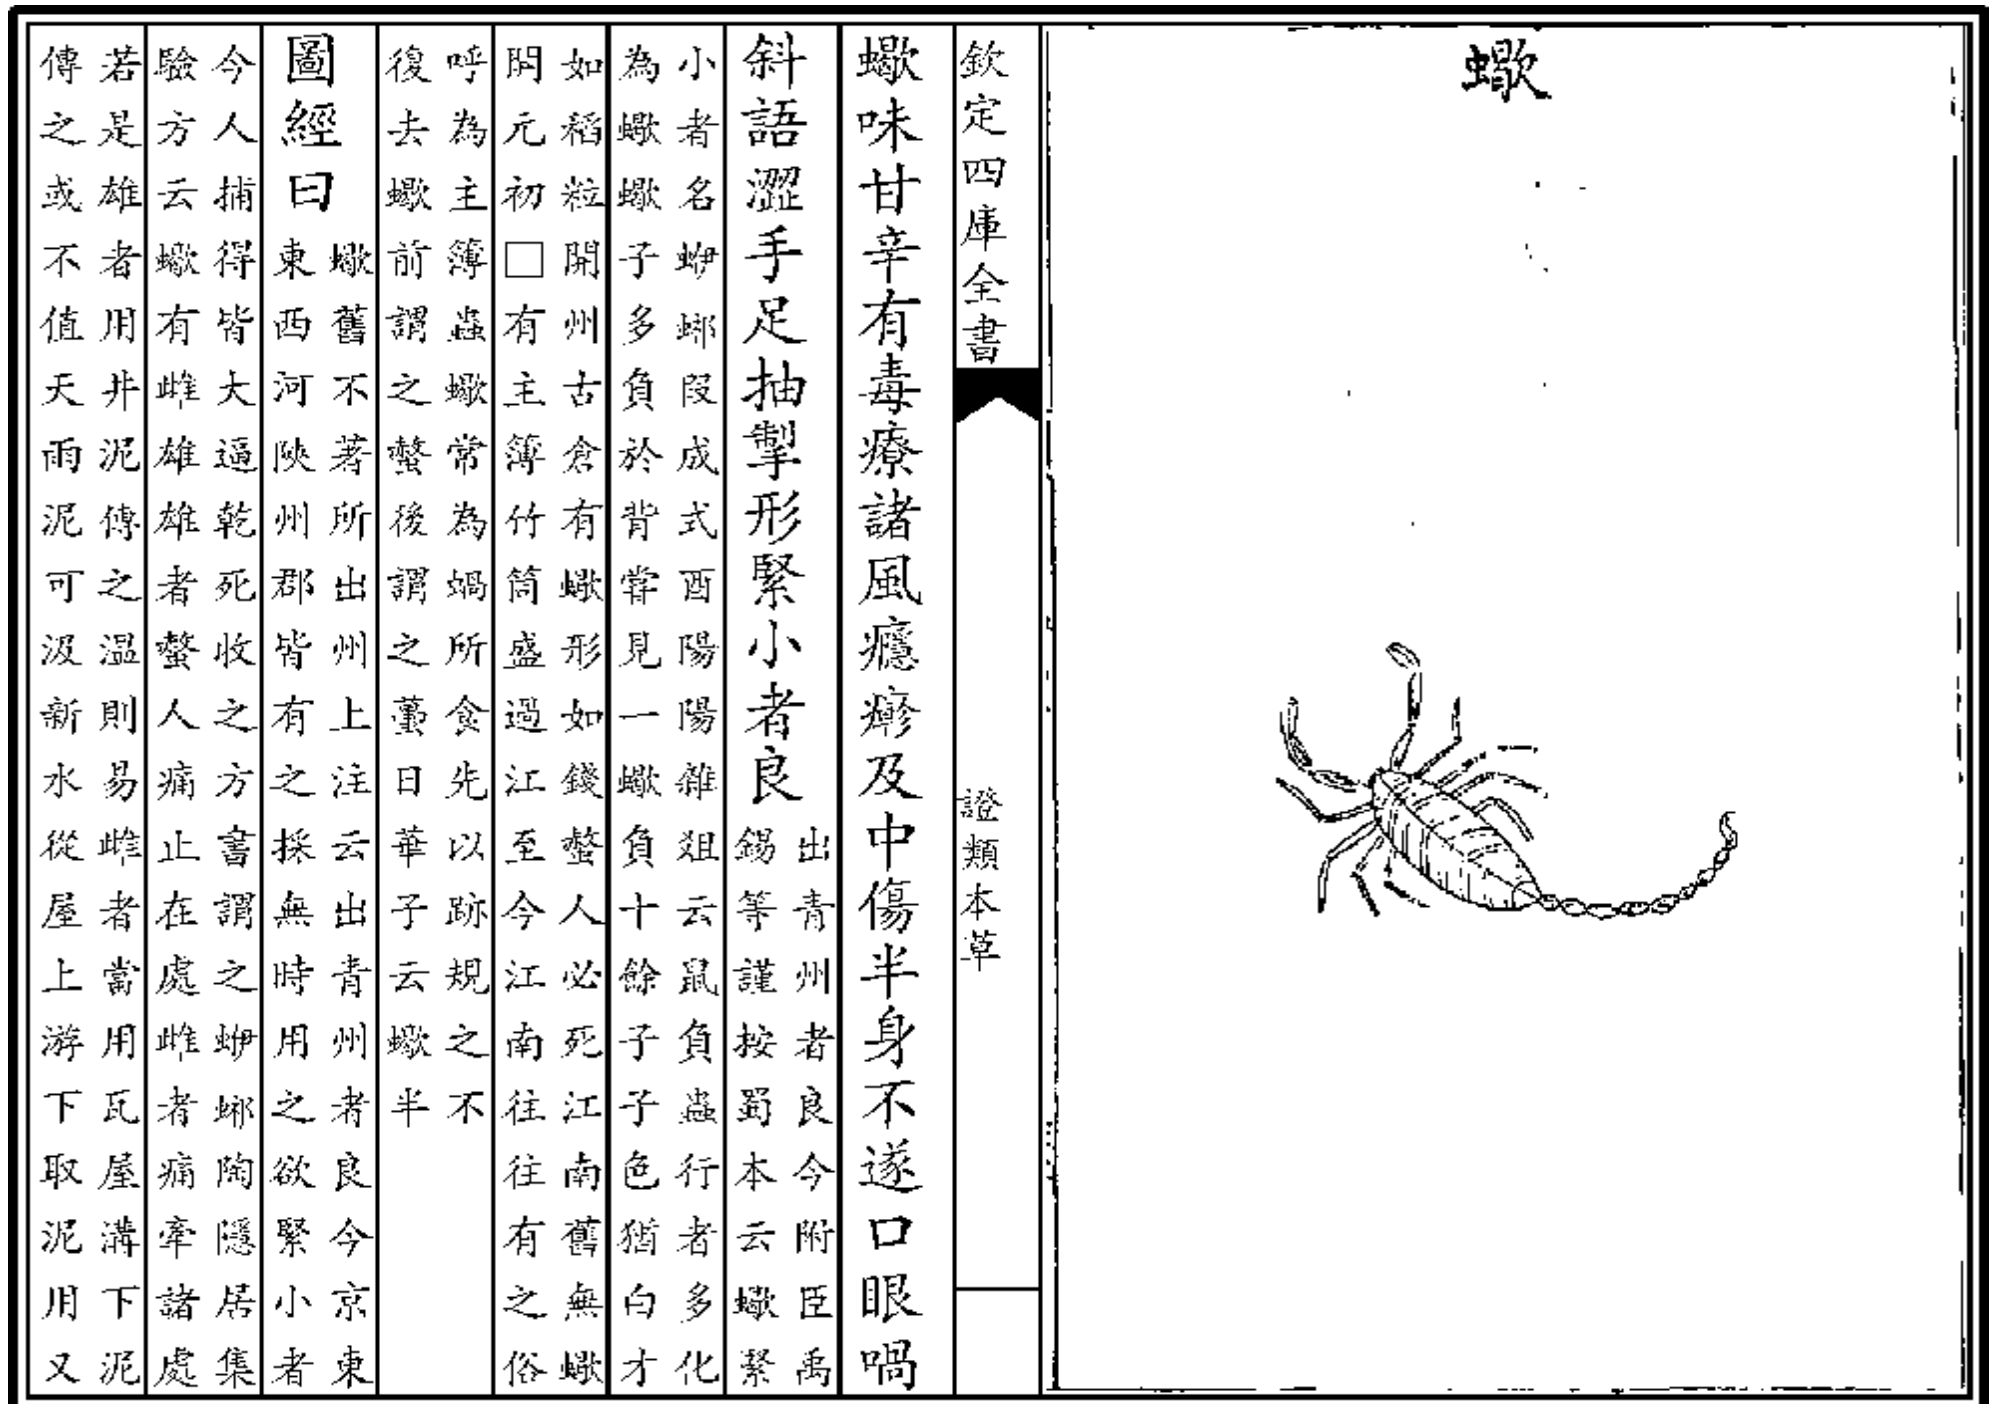 蠍
欽定四庫全書
證類本草
蠍味甘辛有毒療諸風癮瘮及中傷半身不遂口眼喎
斜語澀手足抽掣形緊小者良
出青州者良今附臣禹
錫等謹按蜀本云蠍緊
小者名蛜𧌴段成式酉陽陽雜俎云鼠負蟲行者多化
為蠍蠍子多負於背嘗見一蠍負十餘子子色猶白才
如稻粒開州古倉有蠍形如錢螫人必死江南舊無蠍
開元初□有主簿竹筒盛過江至今江南往往有之俗
呼為主簿蟲蠍常為蝸所食先以跡規之不
復去蠍前謂之螫後謂之蠆日華子云蠍半
圖經曰
蠍舊不著所出州上注云出青州者良今京東
東西河陝州郡皆有之採無時用之欲緊小者
今人捕得皆大逼乾死收之方書謂之蛜𧌴陶隱居集
驗方云蠍有雌雄雄者螫人痛止在處雌者痛牽諸處
若是雄者用井泥傳之温則易雌者當用瓦屋溝下泥
傳之或不值天雨泥可汲新水從屋上游下取泥用又